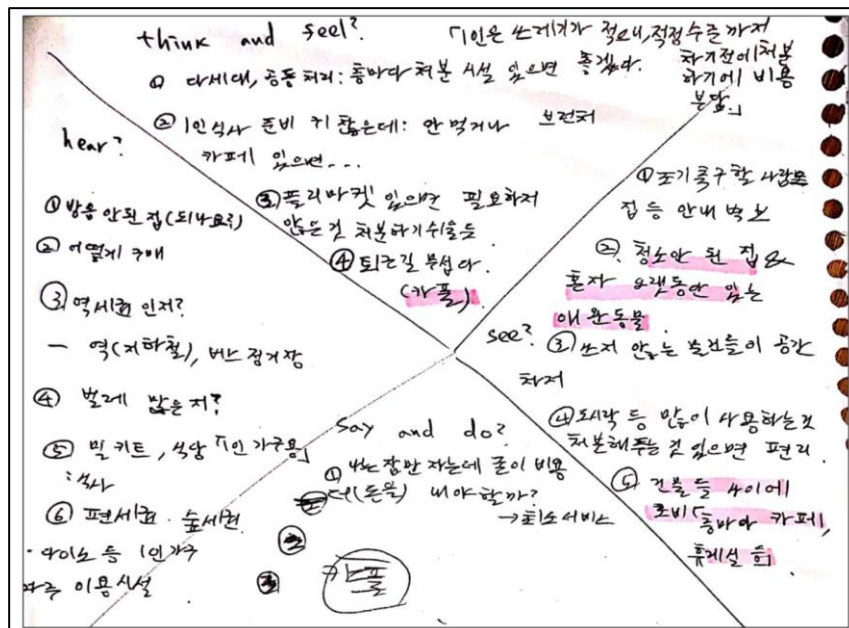 think and feel?
「1인은 쓰레기가 적으니, 적정수준까지
차기전에 처분
하기에 비용
부담.」
① 다세대, 공동 처리: 층마다 처분 시설 있으면 좋겠다.
② 1인식사 준비 귀찮은데: 안 먹거나 브런치
카페 있으면...
③ 플리마켓 있으면 필요하지
않은 것 처분하기 쉬울 듯
④ 퇴근길 무섭다.
(카풀)
hear?
① 방음 안된 집(되나요?)
② 어떻게 구매
③ 역세권 인지?
- 역(지하철), 버스 정거장
④ 벌레 많은지?
⑤ 밀키트, 식당 「1인 가구용」
: 식사
⑥ 편세권. 숲세권
· 다이소 등 1인가구
자주 이용시설
see?
① 조기축구할 사람모
집 등 안내 벽보
② 청소안 된 집 &
혼자 오랫동안 있는
애완동물
③ 쓰지 않는 물건들이 공간
차지
④ 도시락 등 많이 사용하는것
처분해주는 것 있으면 편리
⑤ 건물들 사이에
로비「층마다 카페,
휴게실 등」
Say and do?
① 나는 잠만 자는데 굳이 비용
더(돈을) 내야 할까?
→ 최소 서비스